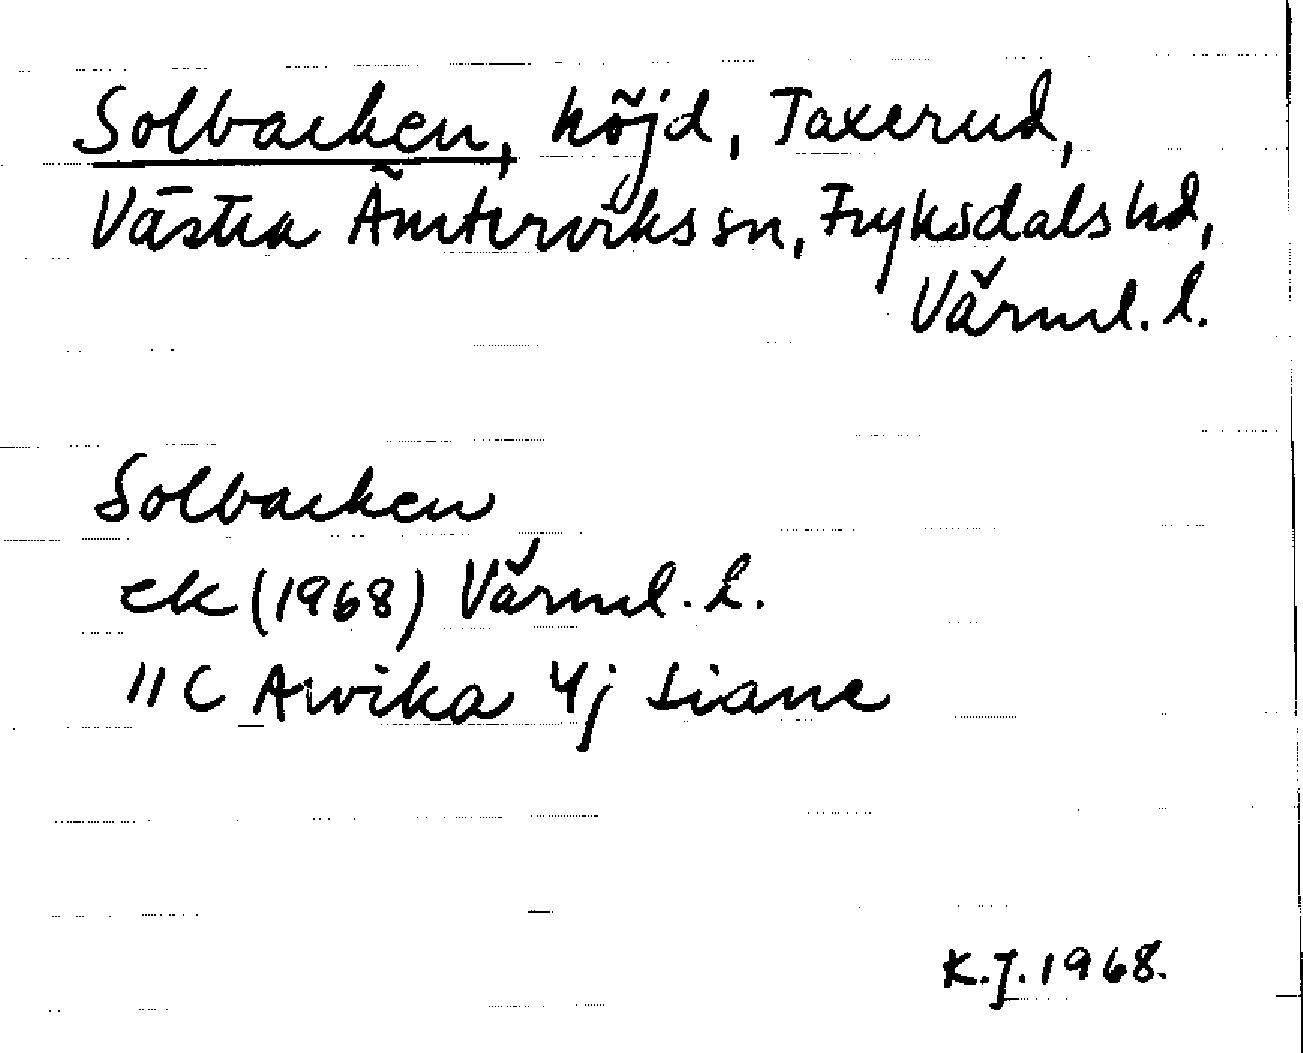 Solbacken, höjd, Taxerud,
Västra Ämterviks sn, Fryksdals hd,
Värml. l.
Solbacken
ek (1968) Värml. l.
11 C Arvika 4j Liane
K.J. 1968.